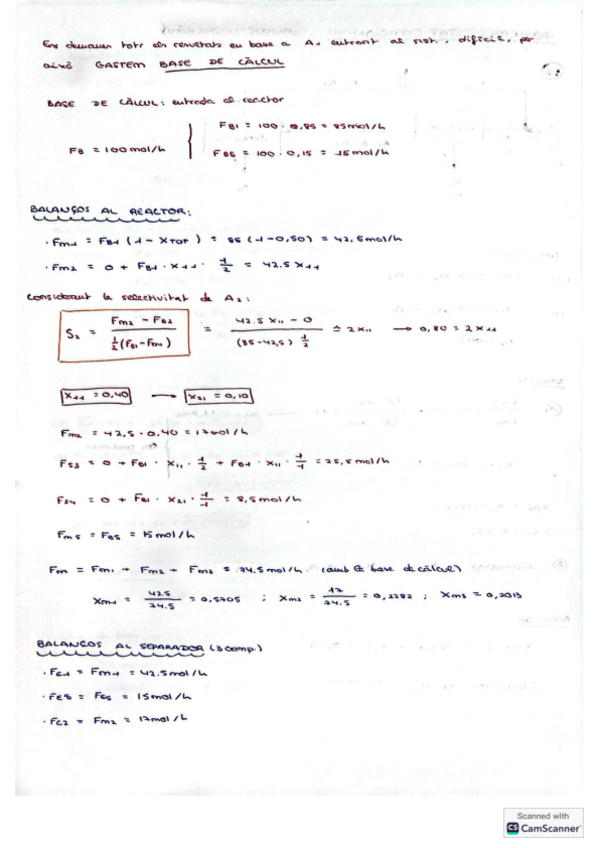 Ens demanen tots els resultats en base a A₁ entrant al sist., difícil, per
això GASTEM BASE DE CÀLCUL
BASE DE CÀLCUL: entrada al reactor
F_B = 100 mol/h
F_B1 = 100 · 0,85 = 85 mol/h
F_B5 = 100 · 0,15 = 15 mol/h
BALANÇOS AL REACTOR:
· F_m1 = F_B1 (1 - X_TOT) = 85 (1 - 0,50) = 42,5 mol/h
· F_m2 = 0 + F_B1 · X₁₁ · 1/2 = 42.5 X₁₁
Considerant la selectivitat de A₂:
S₂ = (F_m2 - F_B2) / (1/2 (F_B1 - F_m1)) = (42.5 X₁₁ - 0) / ((85 - 42,5) 1/2) = 2 X₁₁ → 0,80 = 2 X₁₁
X₁₁ = 0,40 → X₂₁ = 0,10
F_m2 = 42,5 · 0,40 = 17 mol/h
F_S3 = 0 + F_B1 · X₁₁ · 1/2 + F_B1 · X₁₁ · 1/1 = 25,5 mol/h
F_S4 = 0 + F_B1 · X₂₁ · 1/1 = 8,5 mol/h
F_m5 = F_B5 = 15 mol/h
F_m = F_m1 + F_m2 + F_m5 = 74.5 mol/h (amb la base de càlcul)
X_m1 = 42.5/74.5 = 0,5705 ; X_m2 = 17/74.5 = 0,2282 ; X_m5 = 0,2013
BALANÇOS AL SEPARADOR (3 comp.)
· F_C1 = F_m1 = 42.5 mol/h
· F_C5 = F_C5 = 15 mol/h
· F_C2 = F_m2 = 17 mol/h
Scanned with
CS CamScanner